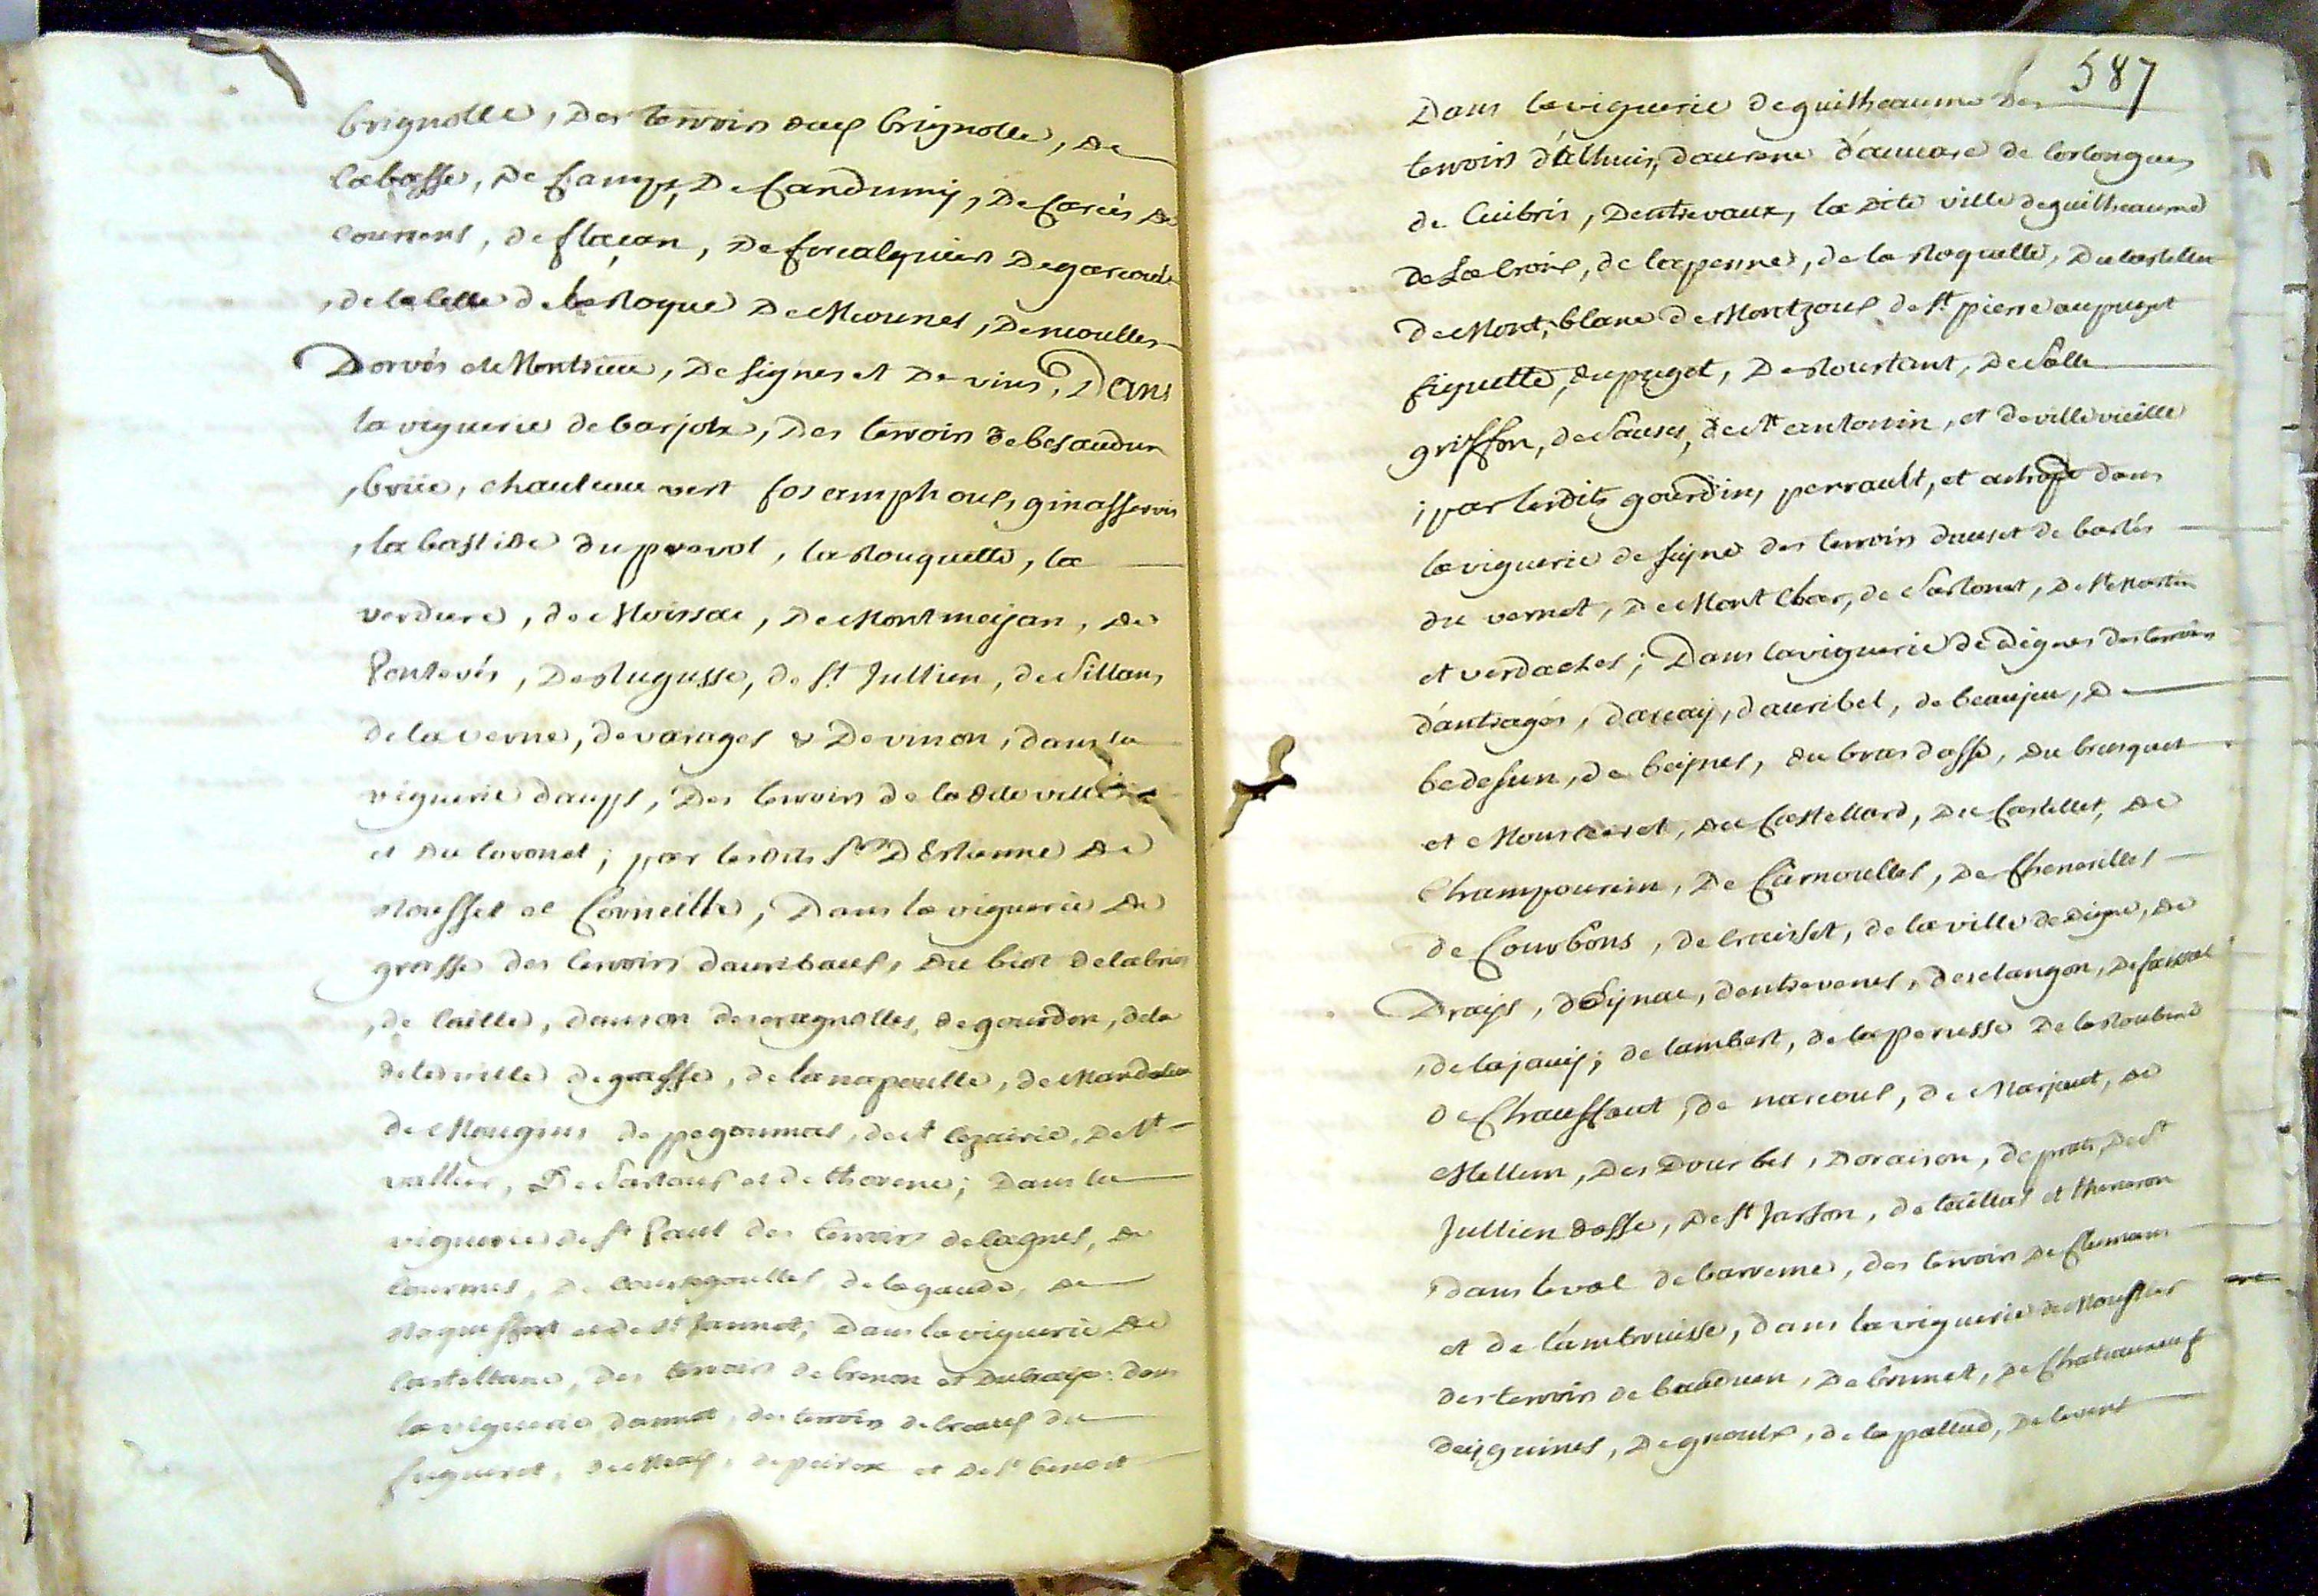 brignolle, des terroirs dud brignolle, de
labasse, de Camps, De Candumy, De Carcés de
courrens, de flaçan, De forcalquieir De garcoul
, de la celle de la Roque De Meounes, De neoulles
Dorvés de Montrieu, De signes et De vins; Dans
la viguerie de barjolx, Des terroirs de besaudun
, brüe, chauteau vert fos amphoux, ginasservis
, la bastide du prevot, la Rouquette, la
verdure, de Moissac, De Montmeyan, de
Pontevés, De Rugusse, de St Jullien, de Sillans
de la verne, de varages & De vinon, dans la
viguerie daups, Des terroirs de la dite ville
et du lavonet; par lesdits Srs D'Estienne de
Rousset et Corneille; Dans la viguerie de
grasse des terroirs dauribaux, Du biot de labris
, de caille, danson descragnolles, de gourdon, de la
de la ville de grasse, de la napoulle, de Mandelieu
de Mougins de pegoumas, de St Cezairie, De St
vallier, De Cartoux et de thorenc; Dans la
viguerie de St Paul des terroirs de cagnes, De
courmes, De coursegoulles, de la gaude, De
Roquefort et de St Jannet; Dans la viguerie de
Castellane, Des terroirs de brenon et Dubraye: dans
la viguerie dannot, des terroirs de breaux du
fugueret, de Meay, de peiresc et de St benoit
587
Dans la viguerie de guilheaume des
terroirs d'alhuis, daurene d'auvare de los longues
de Cuibris, Dentrevaux, la dite ville de guilheaume
de La Croix, de la penne, de la Roquette, Du castellet
de Mont, blanc de Montzoux de St pierre au puget
figuette, du puget, De Roustant, De Salle
griffon, de Sauses, de St antonin, et de ville vieille
; par lesdits gourdin, perrault, et astropt dans
la viguerie de seyne des terroirs dauset de barles
du vernet, De Mont Clar, de Sartonet, De St Martin
et verdaches; Dans la viguerie de Dignes des terroirs
d'antragés, darcay, dauribel, de beaujeu, De
bedesun, de beijnes, du bras dasse, Du brusquet
et Mousteiret, Du Castellard, Du Castellet, De
Champourcin, De Carnoulles, De Chenerilles
de Courbons, de Cruisset, de la ville de digne, de
Drays, d'Eijnac, dentrevenes, desclangon, De faissal
, de lajavy; de lambert, de la perusse De la Roubine
De Chauffaut, de narcoux, de Marjaut, de
Mellum, Des Dourbes, Doraison, de prats, De St
Jullien dasse, De St Jarson, de taullas et theneron
, dans leval de barreme, des terroirs de Clumanc
et de l'ambruisse, dans la viguerie de Moustiers
des terroirs de bauduen, De brunet, de Chateauneuf
deiguines, De greoulx, de la pallud, De levens